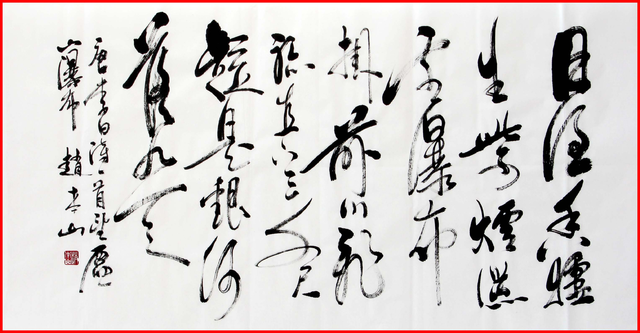 日照香爐
生紫煙遙
看瀑布
掛前川飛
流直下三千尺
疑是銀河
落九天
唐李白詩一首望廬
山瀑布 趙 山